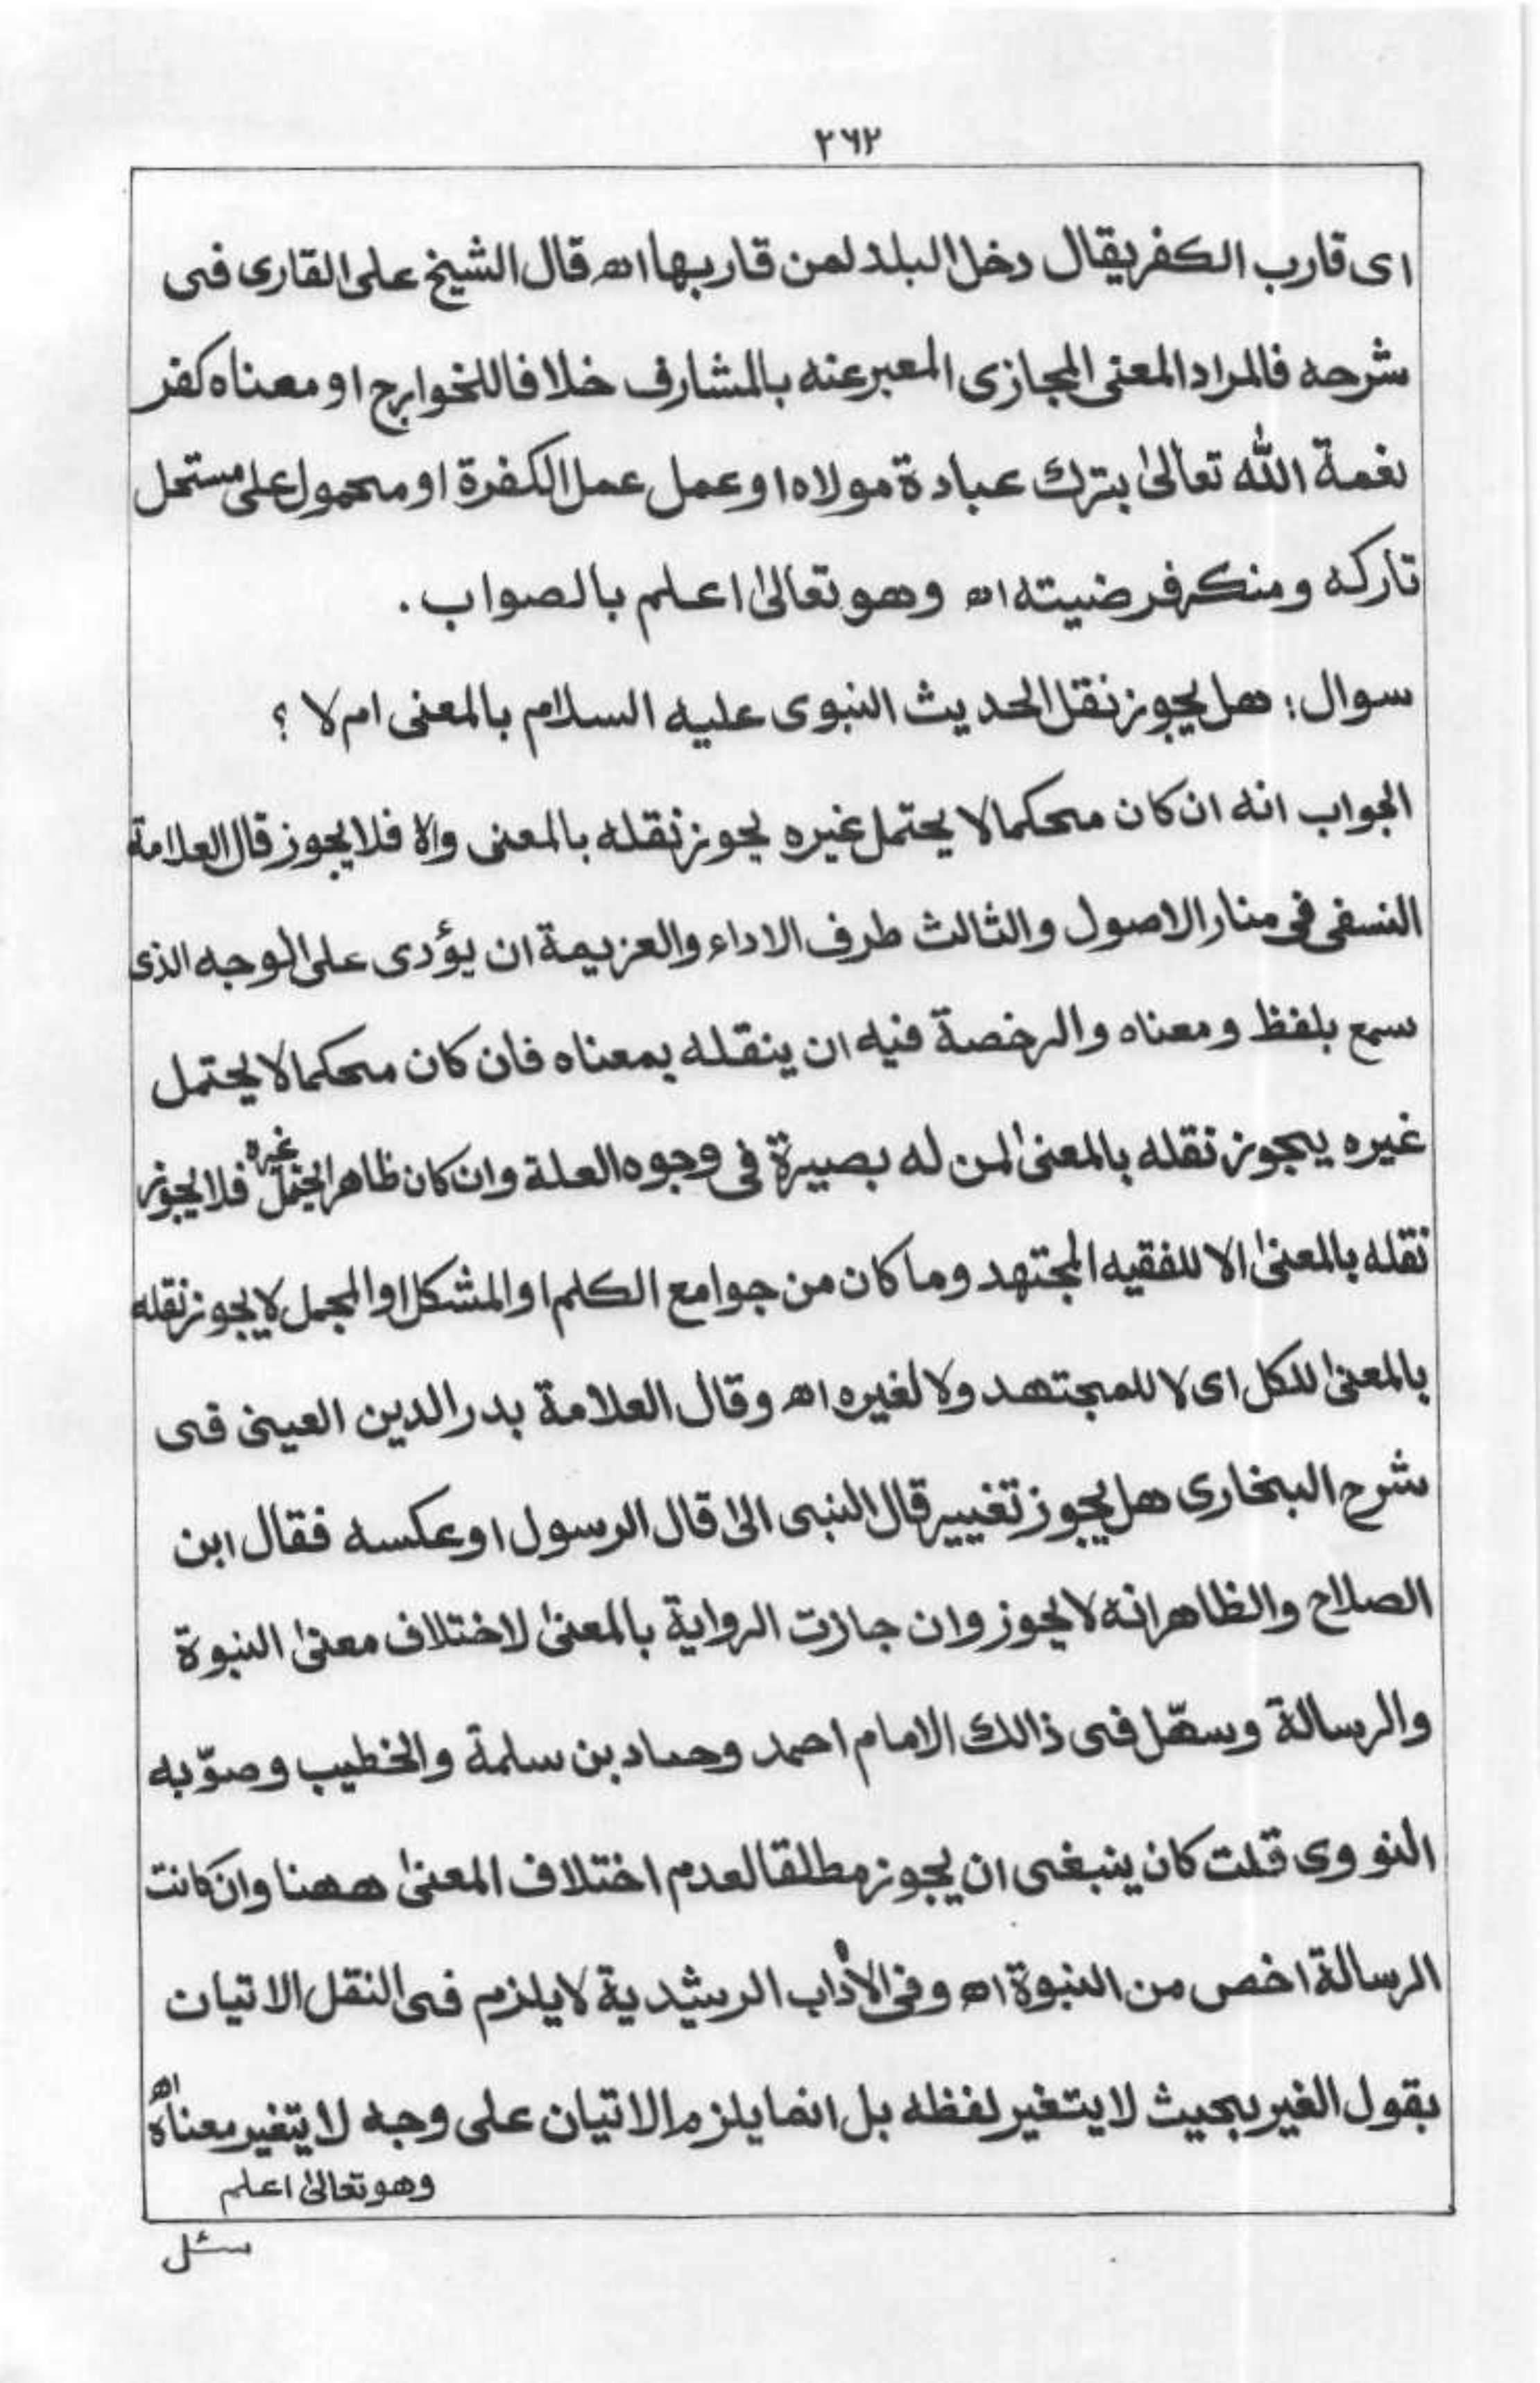 ٢٦٢
اى قارب الكفر يقال دخل البلد لمن قاربها اھ قال الشيخ على القارى فى
شرحه فالمراد المعنى المجازى المعبر عنه بالمشارف خلافا للخوارج او معناه كفر
نعمة الله تعالىٰ بترك عبادة مولاه او عمل عمل الكفرة او محمول على مستحل
تاركه ومنكر فرضيته اھ وهو تعالىٰ اعلم بالصواب .
سوال : هل يجوز نقل الحديث النبوى عليه السلام بالمعنى ام لا ؟
الجواب انه ان كان محكما لا يحتمل غيره يجوز نقله بالمعنى والا فلا يجوز قال العلامة
النسفى فى منار الاصول والثالث طرف الاداء والعزيمة ان يؤدى على الوجه الذى
سمع بلفظ ومعناه والرخصة فيه ان ينقله بمعناه فان كان محكما لا يحتمل
غيره يجوز نقله بالمعنىٰ لمن له بصيرة فى وجوه العلة وان كان ظاهرا يحتمل غيره فلا يجوز
نقله بالمعنىٰ الا للفقيه المجتهد وما كان من جوامع الكلم او المشكل او المجمل لا يجوز نقله
بالمعنىٰ للكل اى لا للمجتهد ولا لغيره اھ وقال العلامة بدر الدين العينى فى
شرح البخارى هل يجوز تغيير قال النبى الىٰ قال الرسول او عكسه فقال ابن
الصلاح والظاهر انه لا يجوز وان جازت الرواية بالمعنىٰ لاختلاف معنىٰ النبوة
والرسالة وسهّل فى ذالك الامام احمد وحماد بن سلمة والخطيب وصوّبه
النووى قلت كان ينبغى ان يجوز مطلقا لعدم اختلاف المعنىٰ ههنا وان كانت
الرسالة اخص من النبوة اھ وفى الأداب الرشيدية لا يلزم فى النقل الاتيان
بقول الغير بحيث لا يتغير لفظه بل انما يلزم الاتيان على وجه لا يتغير معناه اھ
وهو تعالىٰ اعلم
سئل